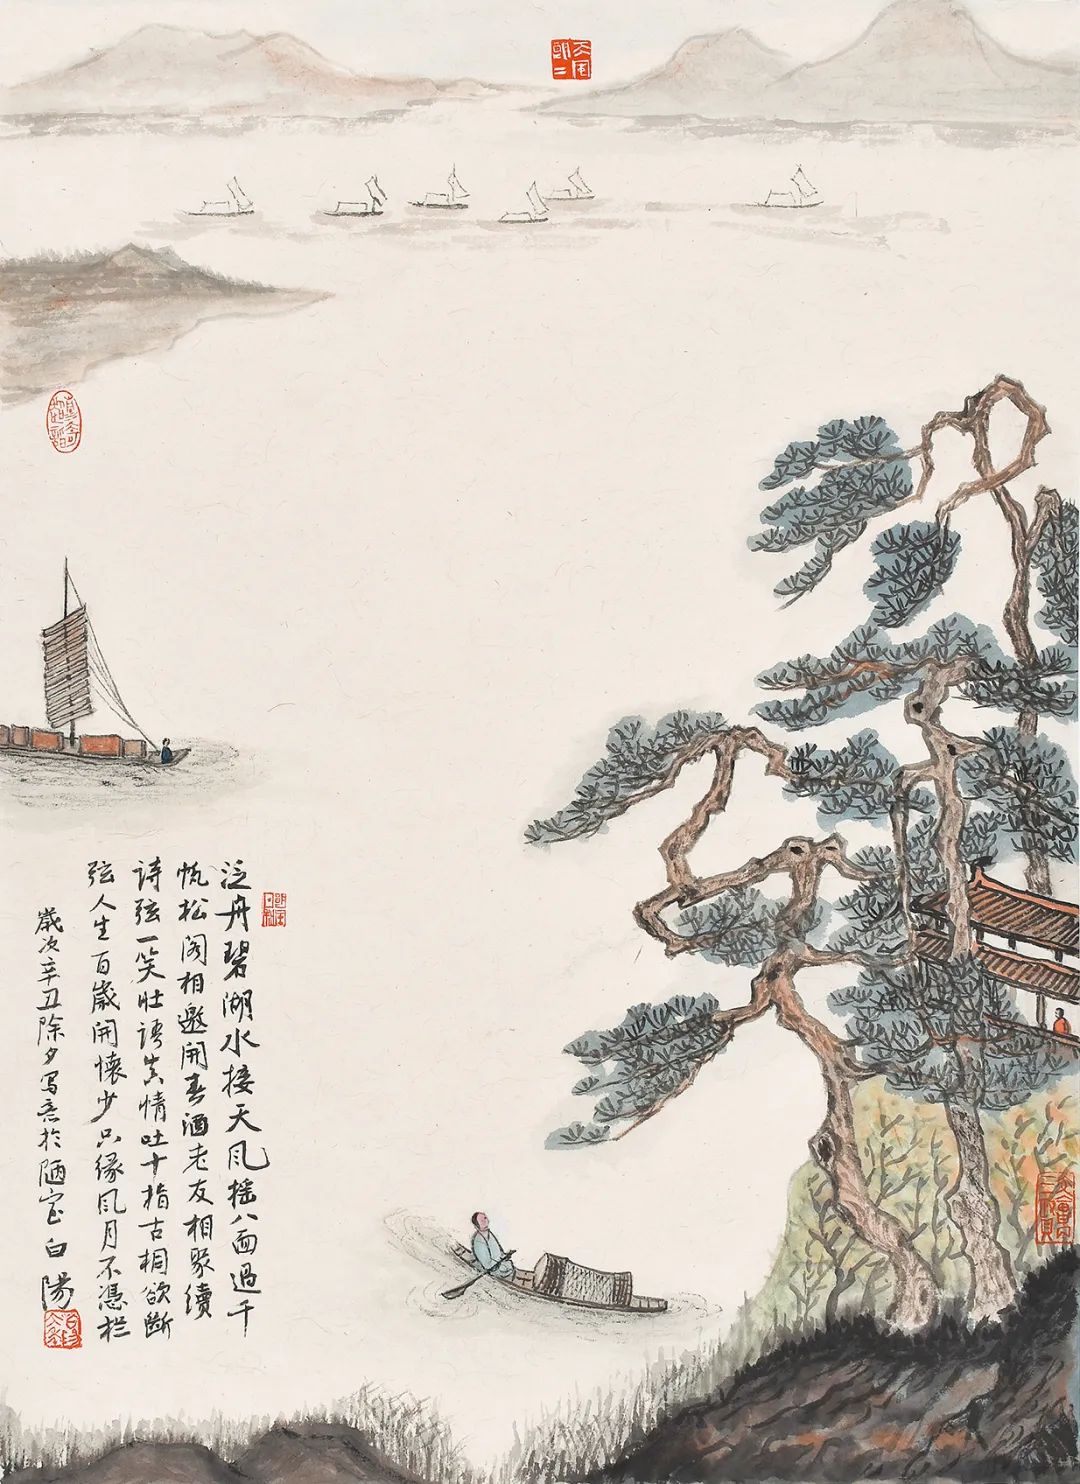 泛舟碧湖水接天风摇八面过千
帆松阁相邀开春酒老友相聚续
诗弦一笑壮语真情吐十指古桐欲断
弦人生百歲開懷少只缘風月不憑栏
歲次辛丑除夕写意於陋室白陽